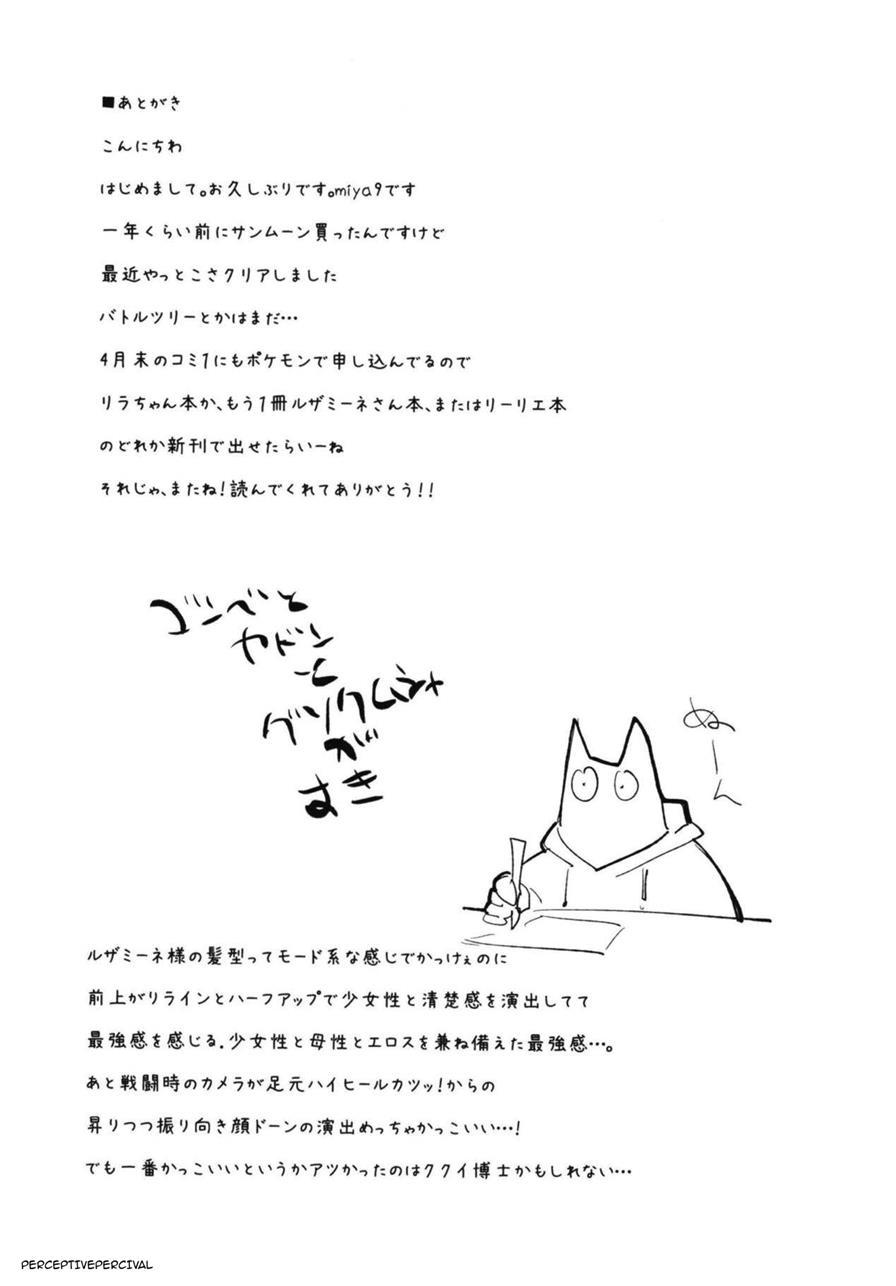 ■あとがき
こんにちわ
はじめまして。お久しぶりです。miya9です
一年くらい前にサンムーン買ったんですけど
最近やっとこさクリアしました
バトルツリーとかはまだ…
4月末のコミ1にもポケモンで申し込んでるので
リラちゃん本か、もう1冊ルザミーネさん本、またはリーリエ本
のどれか新刊で出せたらいーね
それじゃ、またね!読んでくれてありがとう!!
ゴンベと
ヤドン
と
グソクムシャ
が
すき
ぬーん
ルザミーネ様の髪型ってモード系な感じでかっけぇのに
前上がりラインとハーフアップで少女性と清楚感を演出してて
最強感を感じる.少女性と母性とエロスを兼ね備えた最強感…。
あと戦闘時のカメラが足元ハイヒールカツッ!からの
昇りつつ振り向き顔ドーンの演出めっちゃかっこいい…!
でも一番かっこいいというかアツかったのはククイ博士かもしれない…
PERCEPTIVEPERCIVAL